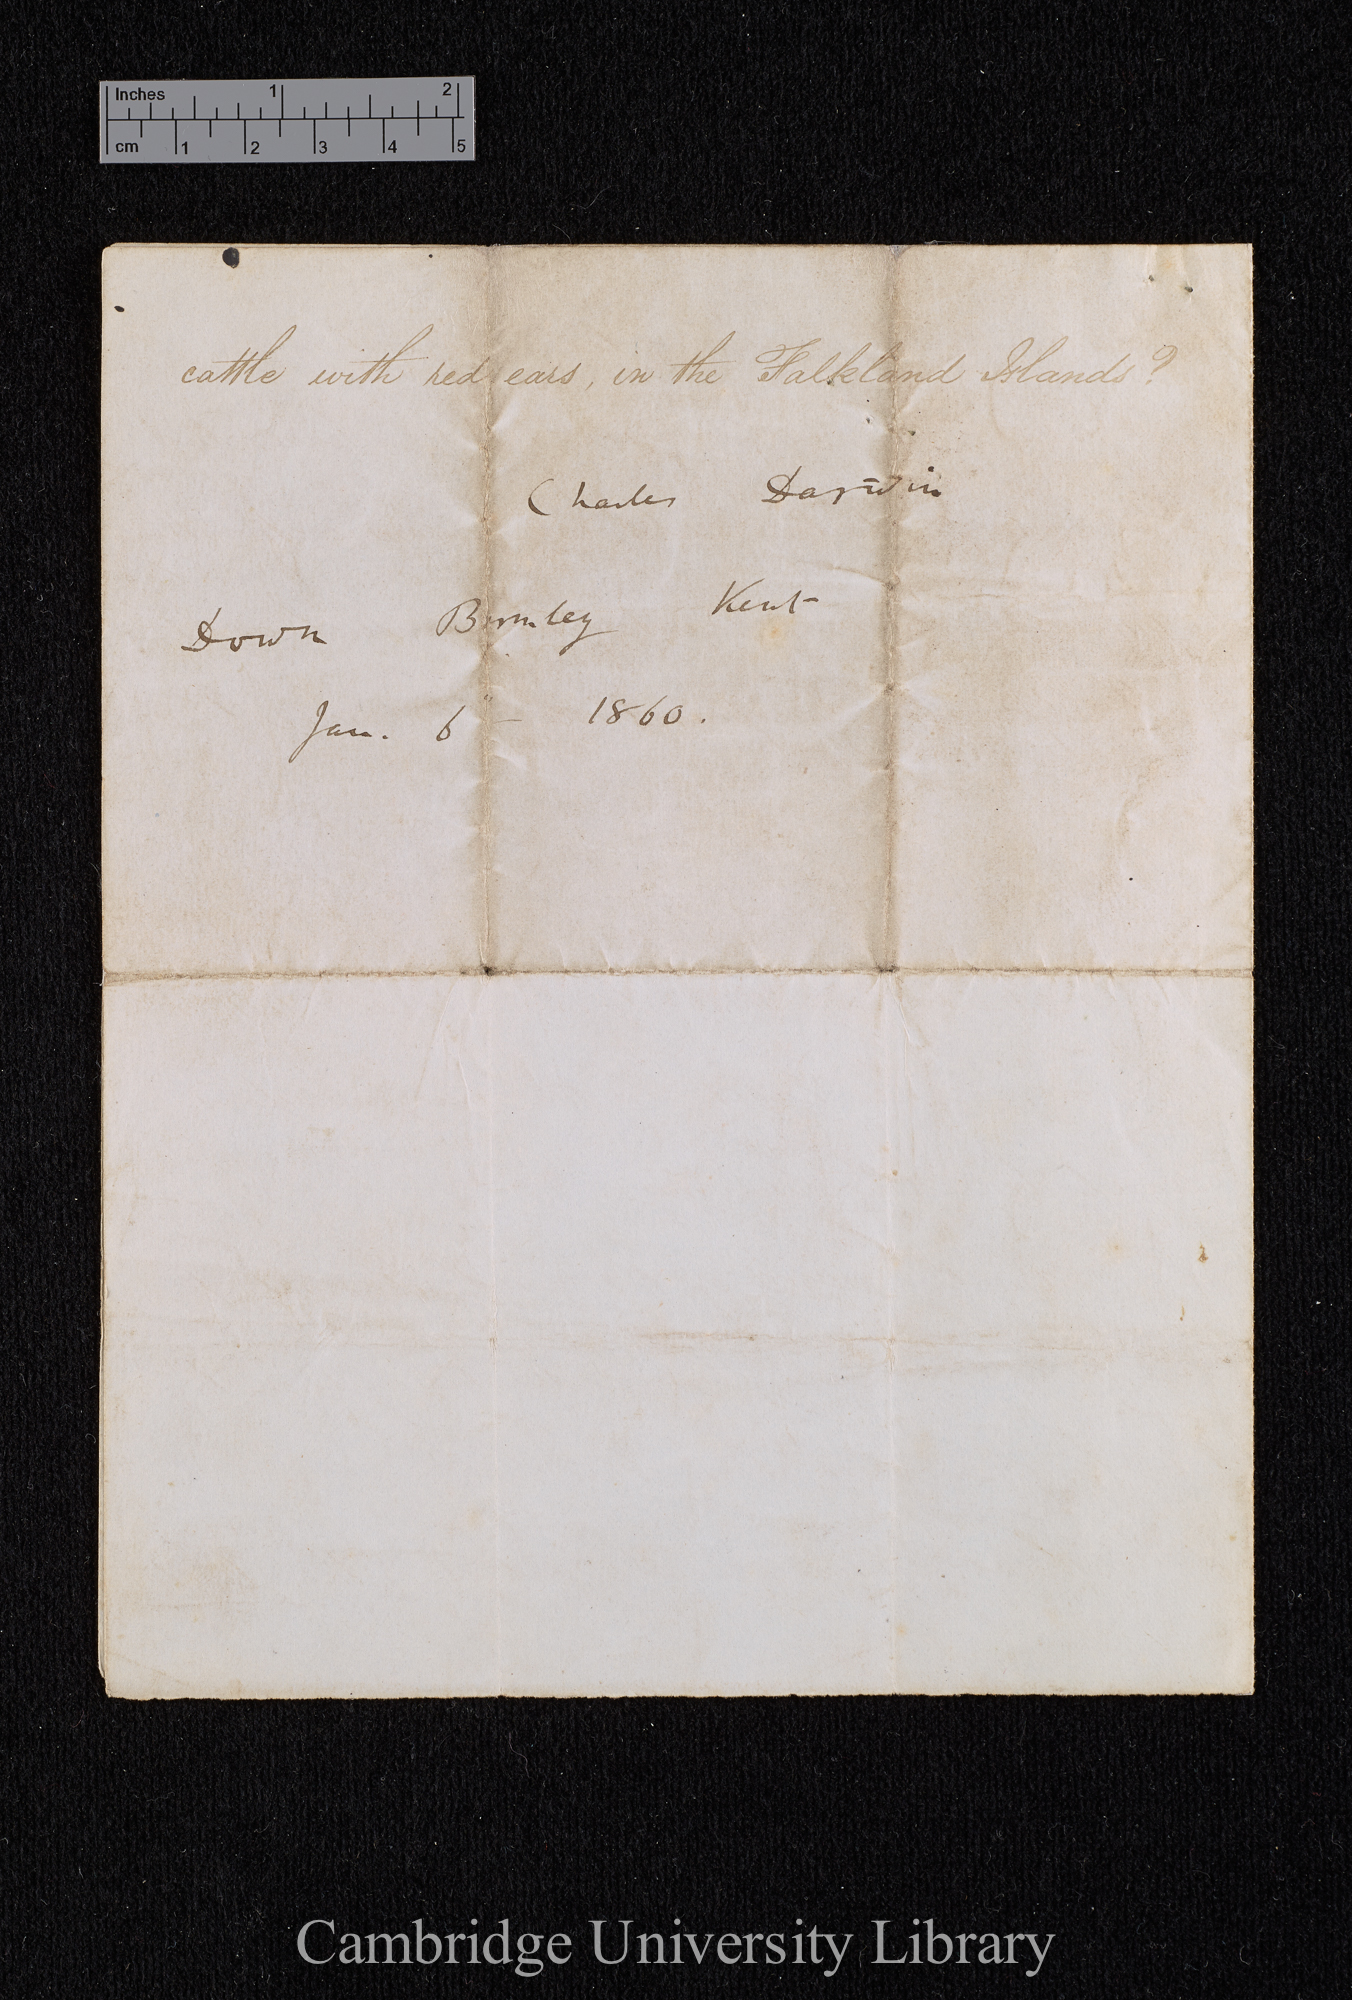 Inches 1 2
cm 1 2 3 4 5
cattle with red ears, in the Falkland Islands?
Charles Darwin
Down Bromley Kent
Jan. 6th 1860.
Cambridge University Library